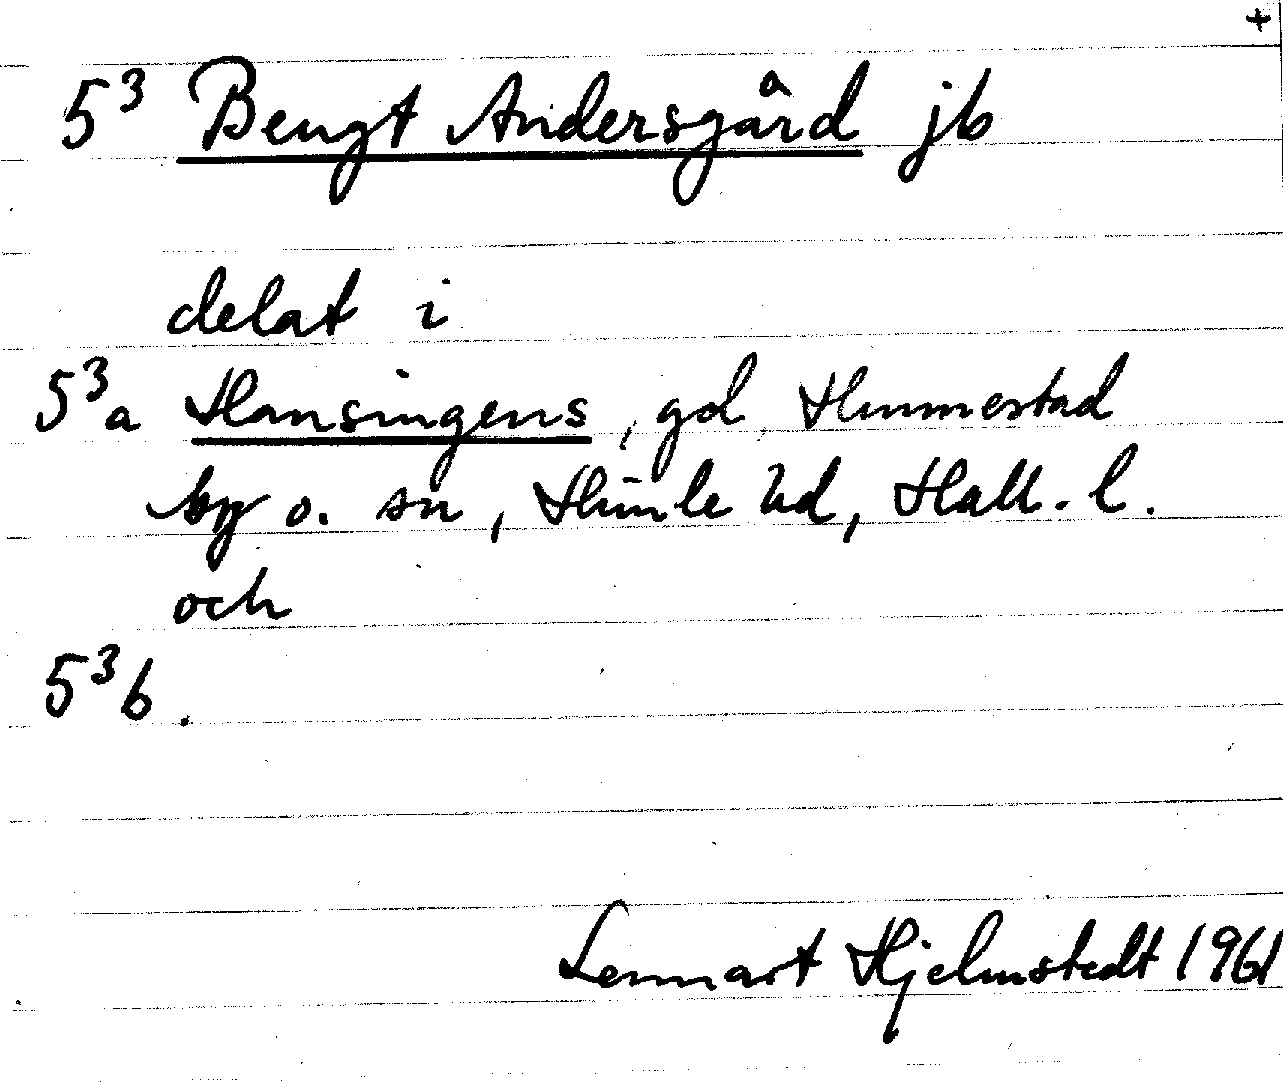 +
5³ Bengt Andersgård jb
delat i
5³a Hansingens, gd, Hunnestad
by o. sn, Himle hd, Hall. l.
och
5³b.
Lennart Hjelmstedt 1961